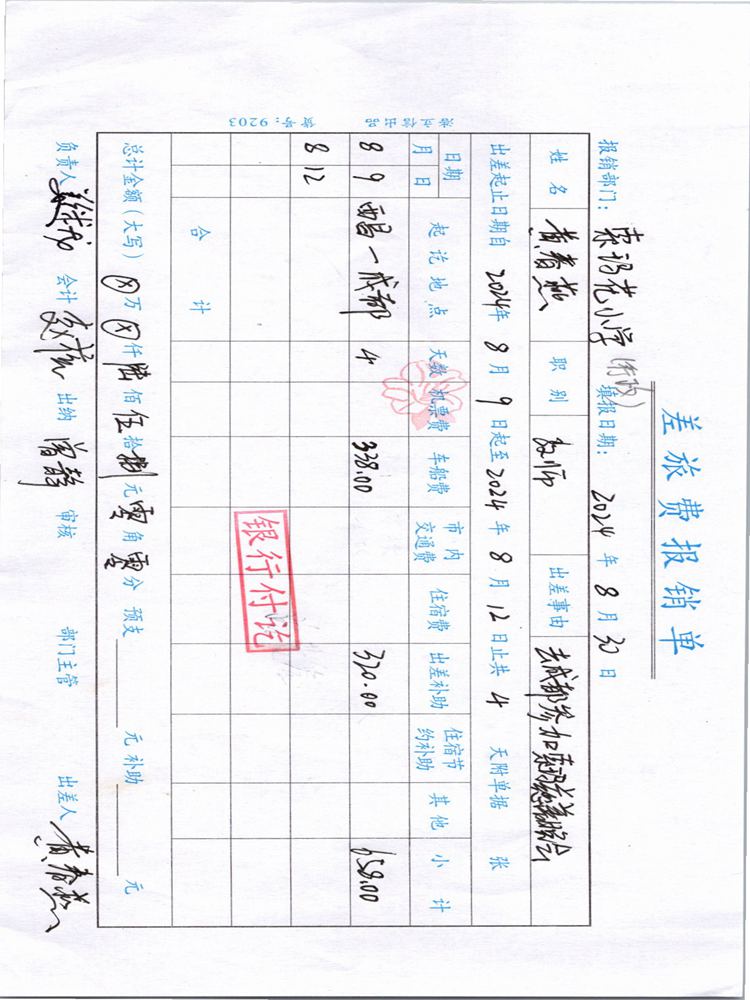 差旅费报销单
报销部门：索玛花小学(行政) 填报日期：2024年8月30日
姓名 黄春燕 职别 教师 出差事由 去成都参加索玛花
出差起止日期自2024年8月9日起至2024年8月12日止共4天附单据 张
日期 起讫地点 天数 机票费 车船费 市内交通费 住宿费 出差补助 住宿节约补助 其他 小计
月 日
8 9 西昌一成都 4 338.00 320.00 658.00
8 12
银行付讫
合计
总计金额(大写) ⊗万⊗仟陆佰伍拾捌元零角零分 预支 元 补助 元
负责人 会计 出纳 曾静 审核 部门主管 出差人 黄春燕
浩立信出品 货号：9203